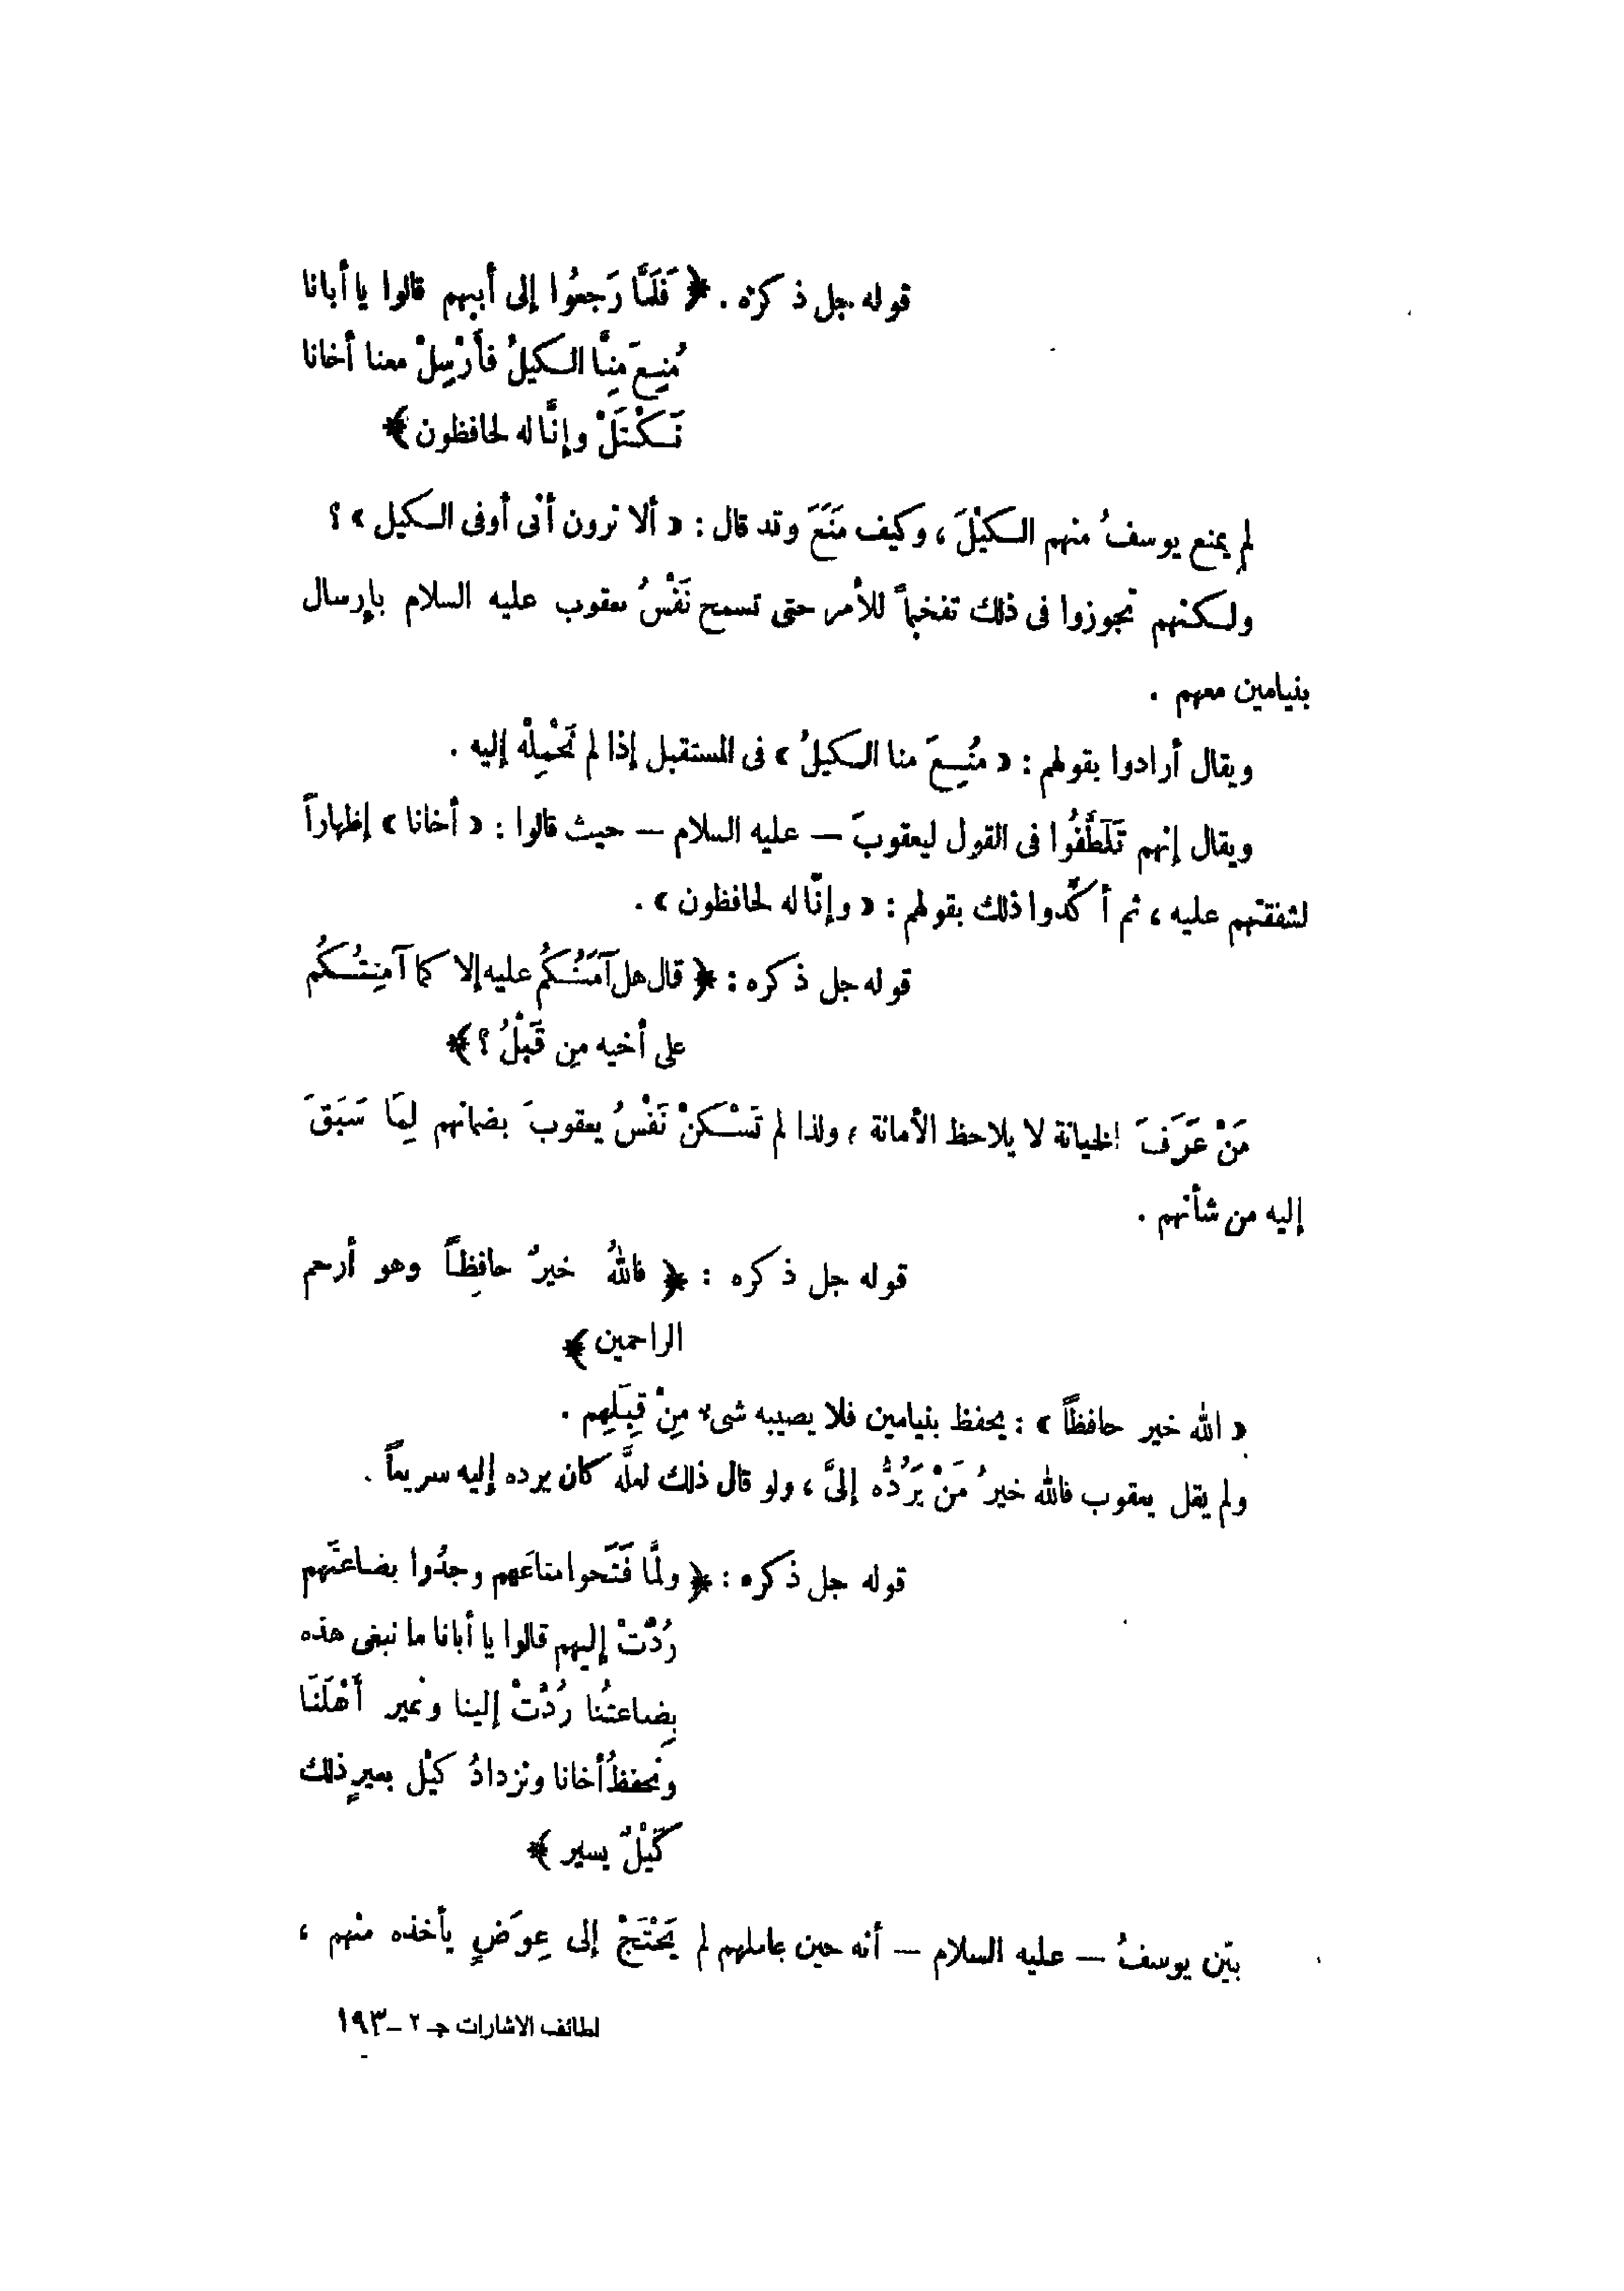 قوله جل ذكره . ﴿ فَلَمَّا رَجعُوا إلى أبيهم قالوا يا أبانا
مُنِعَ مِنَّا الكيلُ فأَرْسِلْ معنا أخانا
نَكْتَلْ وإنَّا له لحافظون ﴾
لم يمنع يوسفُ منهم الكيْلَ ، وكيف مَنَعَ وقد قال : « ألا ترون أنى أوفى الكيل » ؟
ولكنهم تجوزوا فى ذلك تفخيماً للأمر حتى تسمح نَفْسُ يعقوب عليه السلام بإرسال
بنيامين معهم .
ويقال أرادوا بقولهم : « مُنِعَ منا الكيلُ » فى المستقبل إذا لم نَحْمِلْه إليه .
ويقال إنهم تَلَطَّفُوا فى القول ليعقوبَ — عليه السلام — حيث قالوا : « أخانا » إظهاراً
لشفقتهم عليه ، ثم أكَّدوا ذلك بقولهم : « وإنَّا له لحافظون » .
قوله جل ذكره : ﴿ قال هل آمَنُكُم عليه إلا كما آمِنتُكُم
على أخيه مِن قَبْلُ ؟ ﴾
مَنْ عَرَفَ الخيانة لا يلاحظ الأمانة ، ولذا لم تَسْكنْ نَفْسُ يعقوبَ بضمانهم لِمَا سَبَقَ
إليه من شأنهم .
قوله جل ذكره : ﴿ فاللهُ خيرٌ حافِظاً وهو أرحم
الراحمين ﴾
« الله خير حافظاً » : يحفظ بنيامين فلا يصيبه شىء مِنْ قِبَلِهِم .
ولم يقل يعقوب فالله خيرُ مَنْ يَرُدُّه إلىَّ ، ولو قال ذلك لعلَّه كان يرده إليه سريعاً .
قوله جل ذكره : ﴿ ولمَّا فَتَحوا متاعَهم وجدُوا بضاعتَهم
رُدَّتْ إليهم قالوا يا أبانا ما نبغى هذه
بِضاعتُنا رُدَّتْ إلينا ونمير أَهْلَنَا
ونحفظُ أخانا ونزدادُ كيْل بعيرٍ ذلك
كَيْلٌ يسير ﴾
بيَّن يوسفُ — عليه السلام — أنه حين عاملهم لم يَحْتَجْ إلى عِوَضٍ يأخذه منهم ،
لطائف الاشارات جـ ٢ – ١٩٣